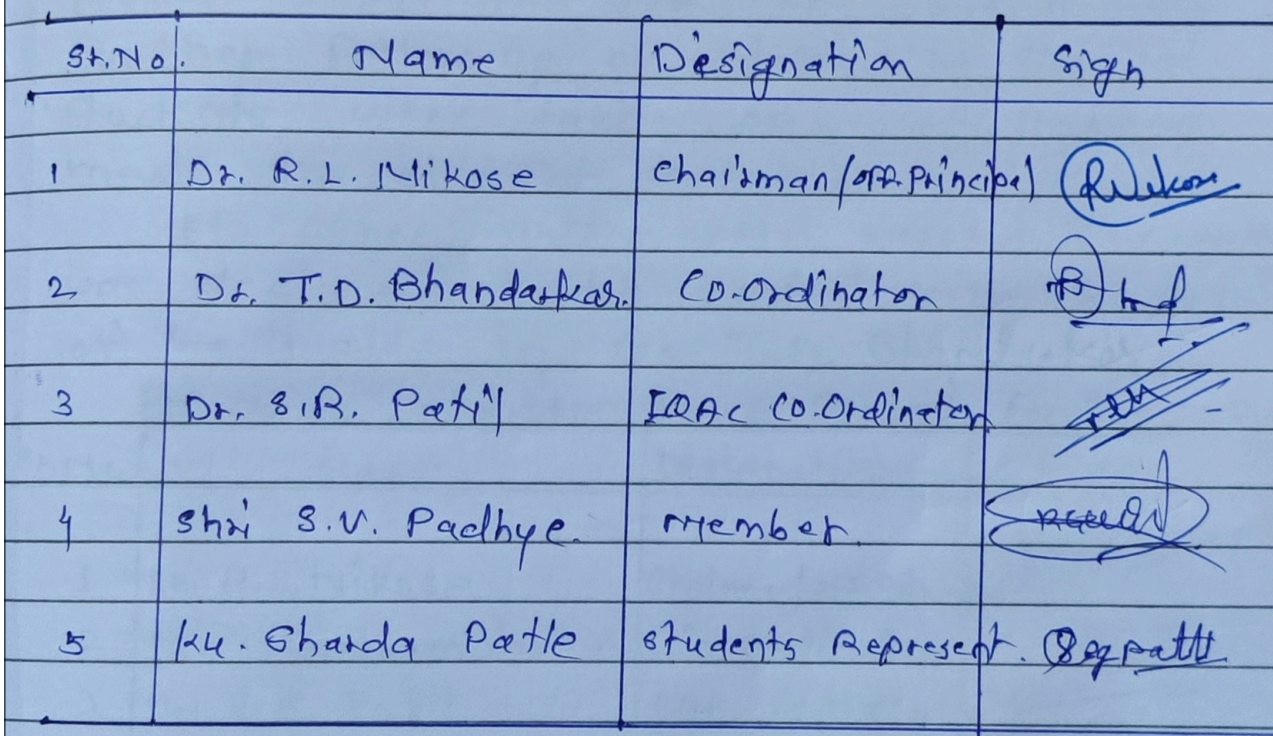 Sr.No. Name Designation Sign
1 Dr. R.L. Nikose Chairman/Off. Principal
2 Dr. T.D. Bhandarkar. Co.Ordinator
3 Dr. S.R. Patil IQAC Co.Ordinator
4 Shri S.V. Padhye. Member.
5 Ku. Sharda Patle Students Represent.